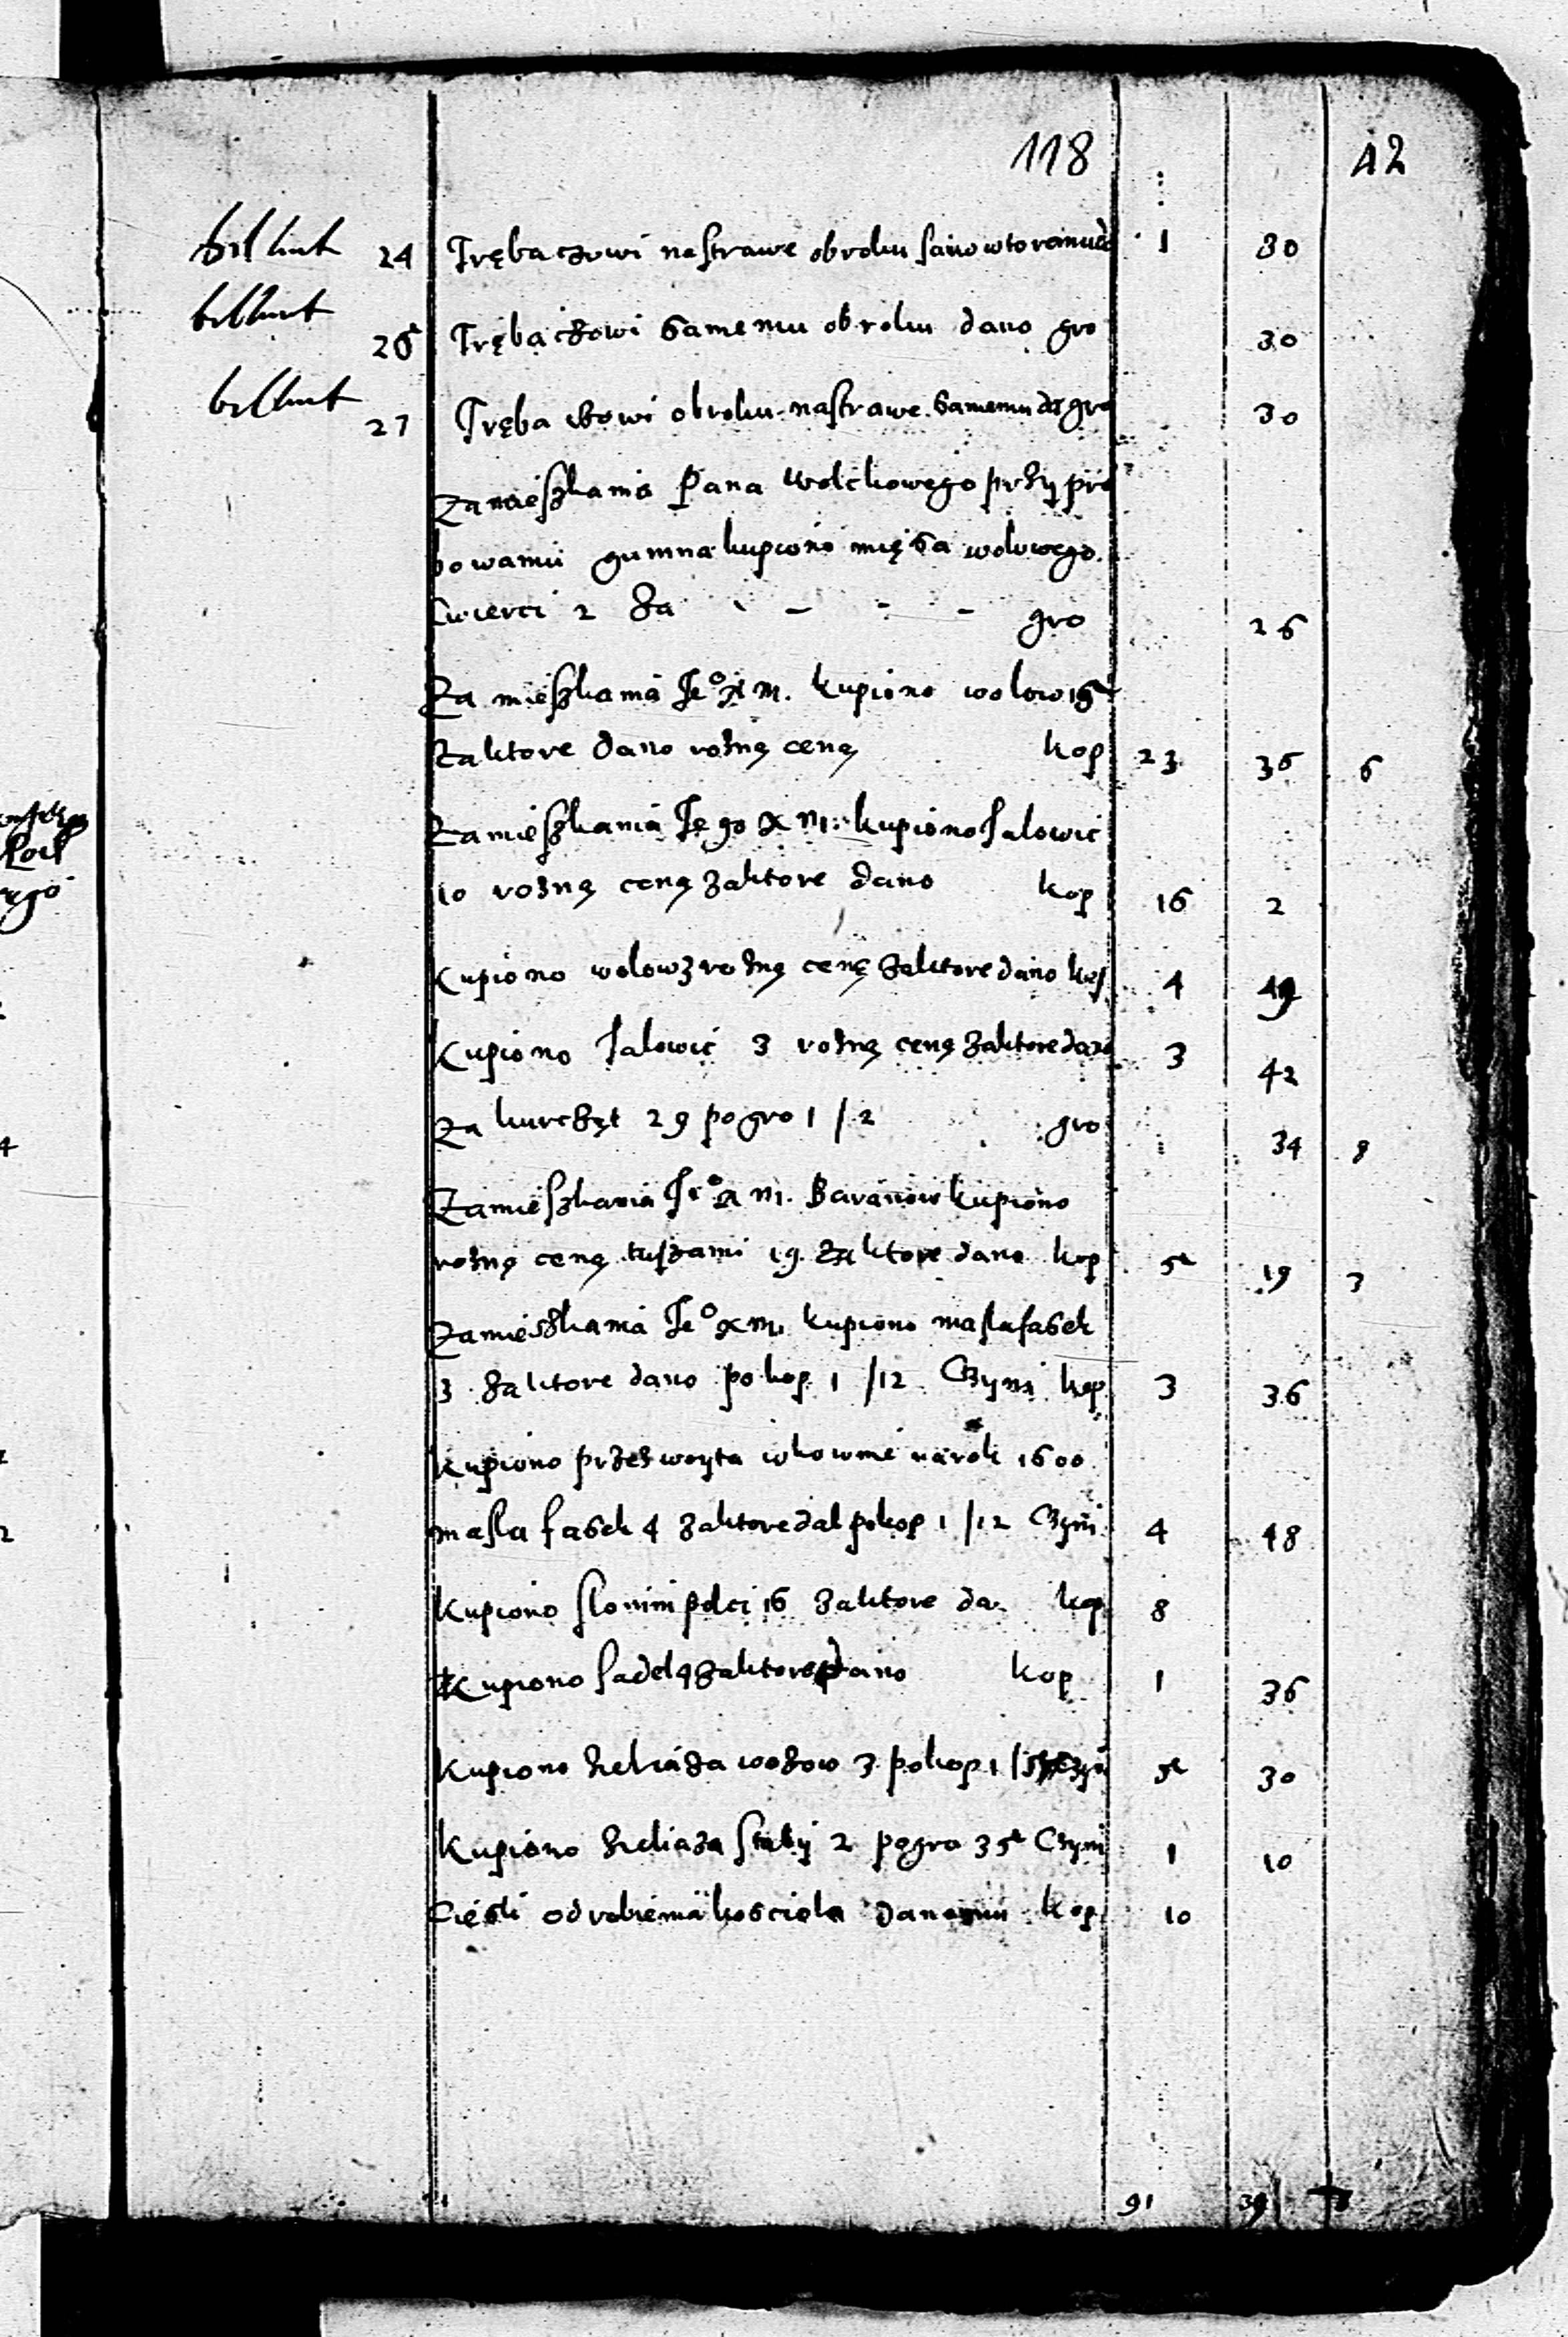 118 42
24 Trębaczowi nastrawe obroku samowtoremu da 1 30
26 Trębaczowi samemu obroku dano gro 30
27 Trębaczowi obroku nastrawe samemu da gro 30
Zamieszkania Pana Wolckowego przy pro
bowaniu gumna kupiono mięsa wolowego
Cwierci 2 za - - - gro 26
Za mieszkania Jeº X M. kupiono wolow 15
Zaktore dano rozną ceną kop 23 36 6
Zamieszkania Jego X M. kupiono Jalowic
10 rozną ceną zaktore dano kop 16 2
Kupiono wolow 3 rozną ceną zaktore dano kop 4 49
Kupiono Jalowic 3 rozną ceną zaktore dano 3 42
Za kurcząt 29 po gro 1 / 2 gro 34 8
Zamieszkania Jeº X M. Baranow kupiono
rozną ceną tuszami 19 zaktore dano kop 5 19 3
Zamieszkania Jeº X M. kupiono masla fasek
3 zaktore dano po kop 1 / 12 Czyni kop 3 36
Kupiono przez woyta wkownie narok 1600
masla fasek 4 zaktore dal po kop 1 / 12 Czyni 4 48
Kupiono slonin polci 16 zaktore da kop 8
Kupiono sadel 4 zaktore dano kop 1 36
Kupiono zeliaza wozow 3 po kop 1 / 5 30
Kupiono zeliaza staby 2 po gro 35 Czyni 1 10
Ciesli od robienia kosciola dano mu kop 10
91 39